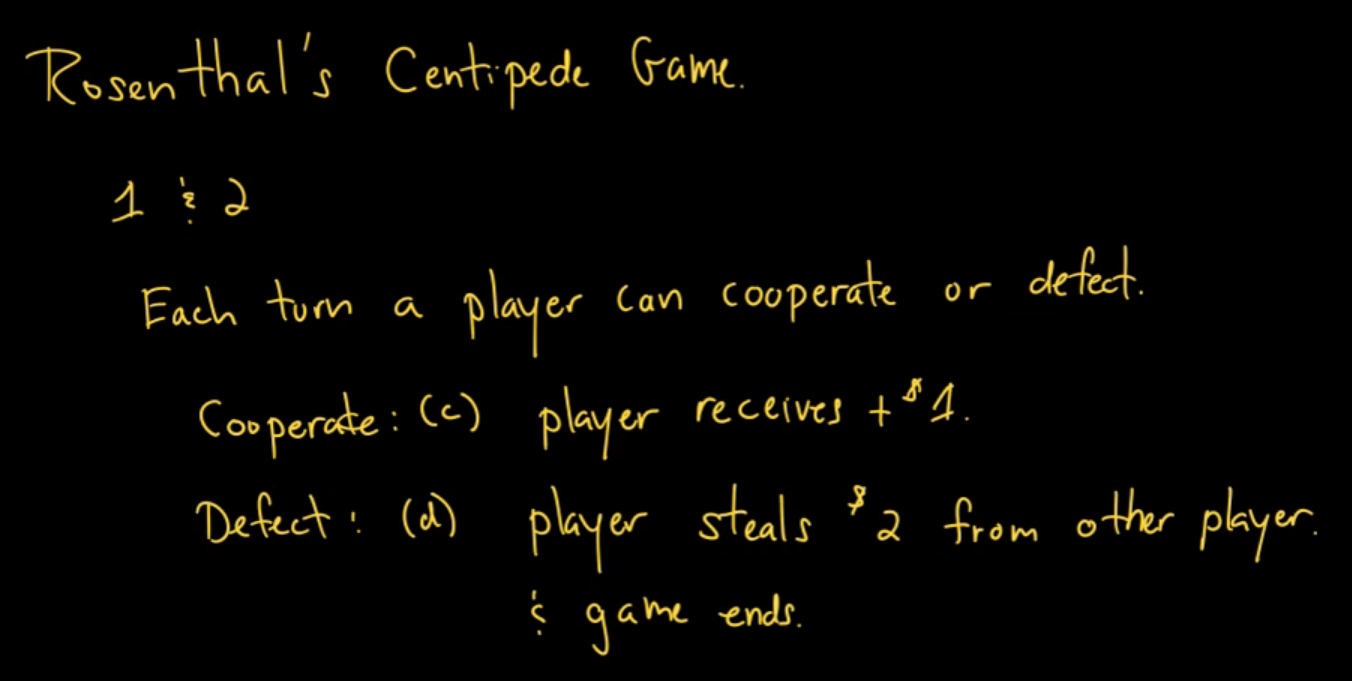 Rosenthal's Centipede Game.
1 & 2
Each turn a player can cooperate or defect.
Cooperate: (c) player receives +$1.
Defect: (d) player steals $2 from other player.
& game ends.